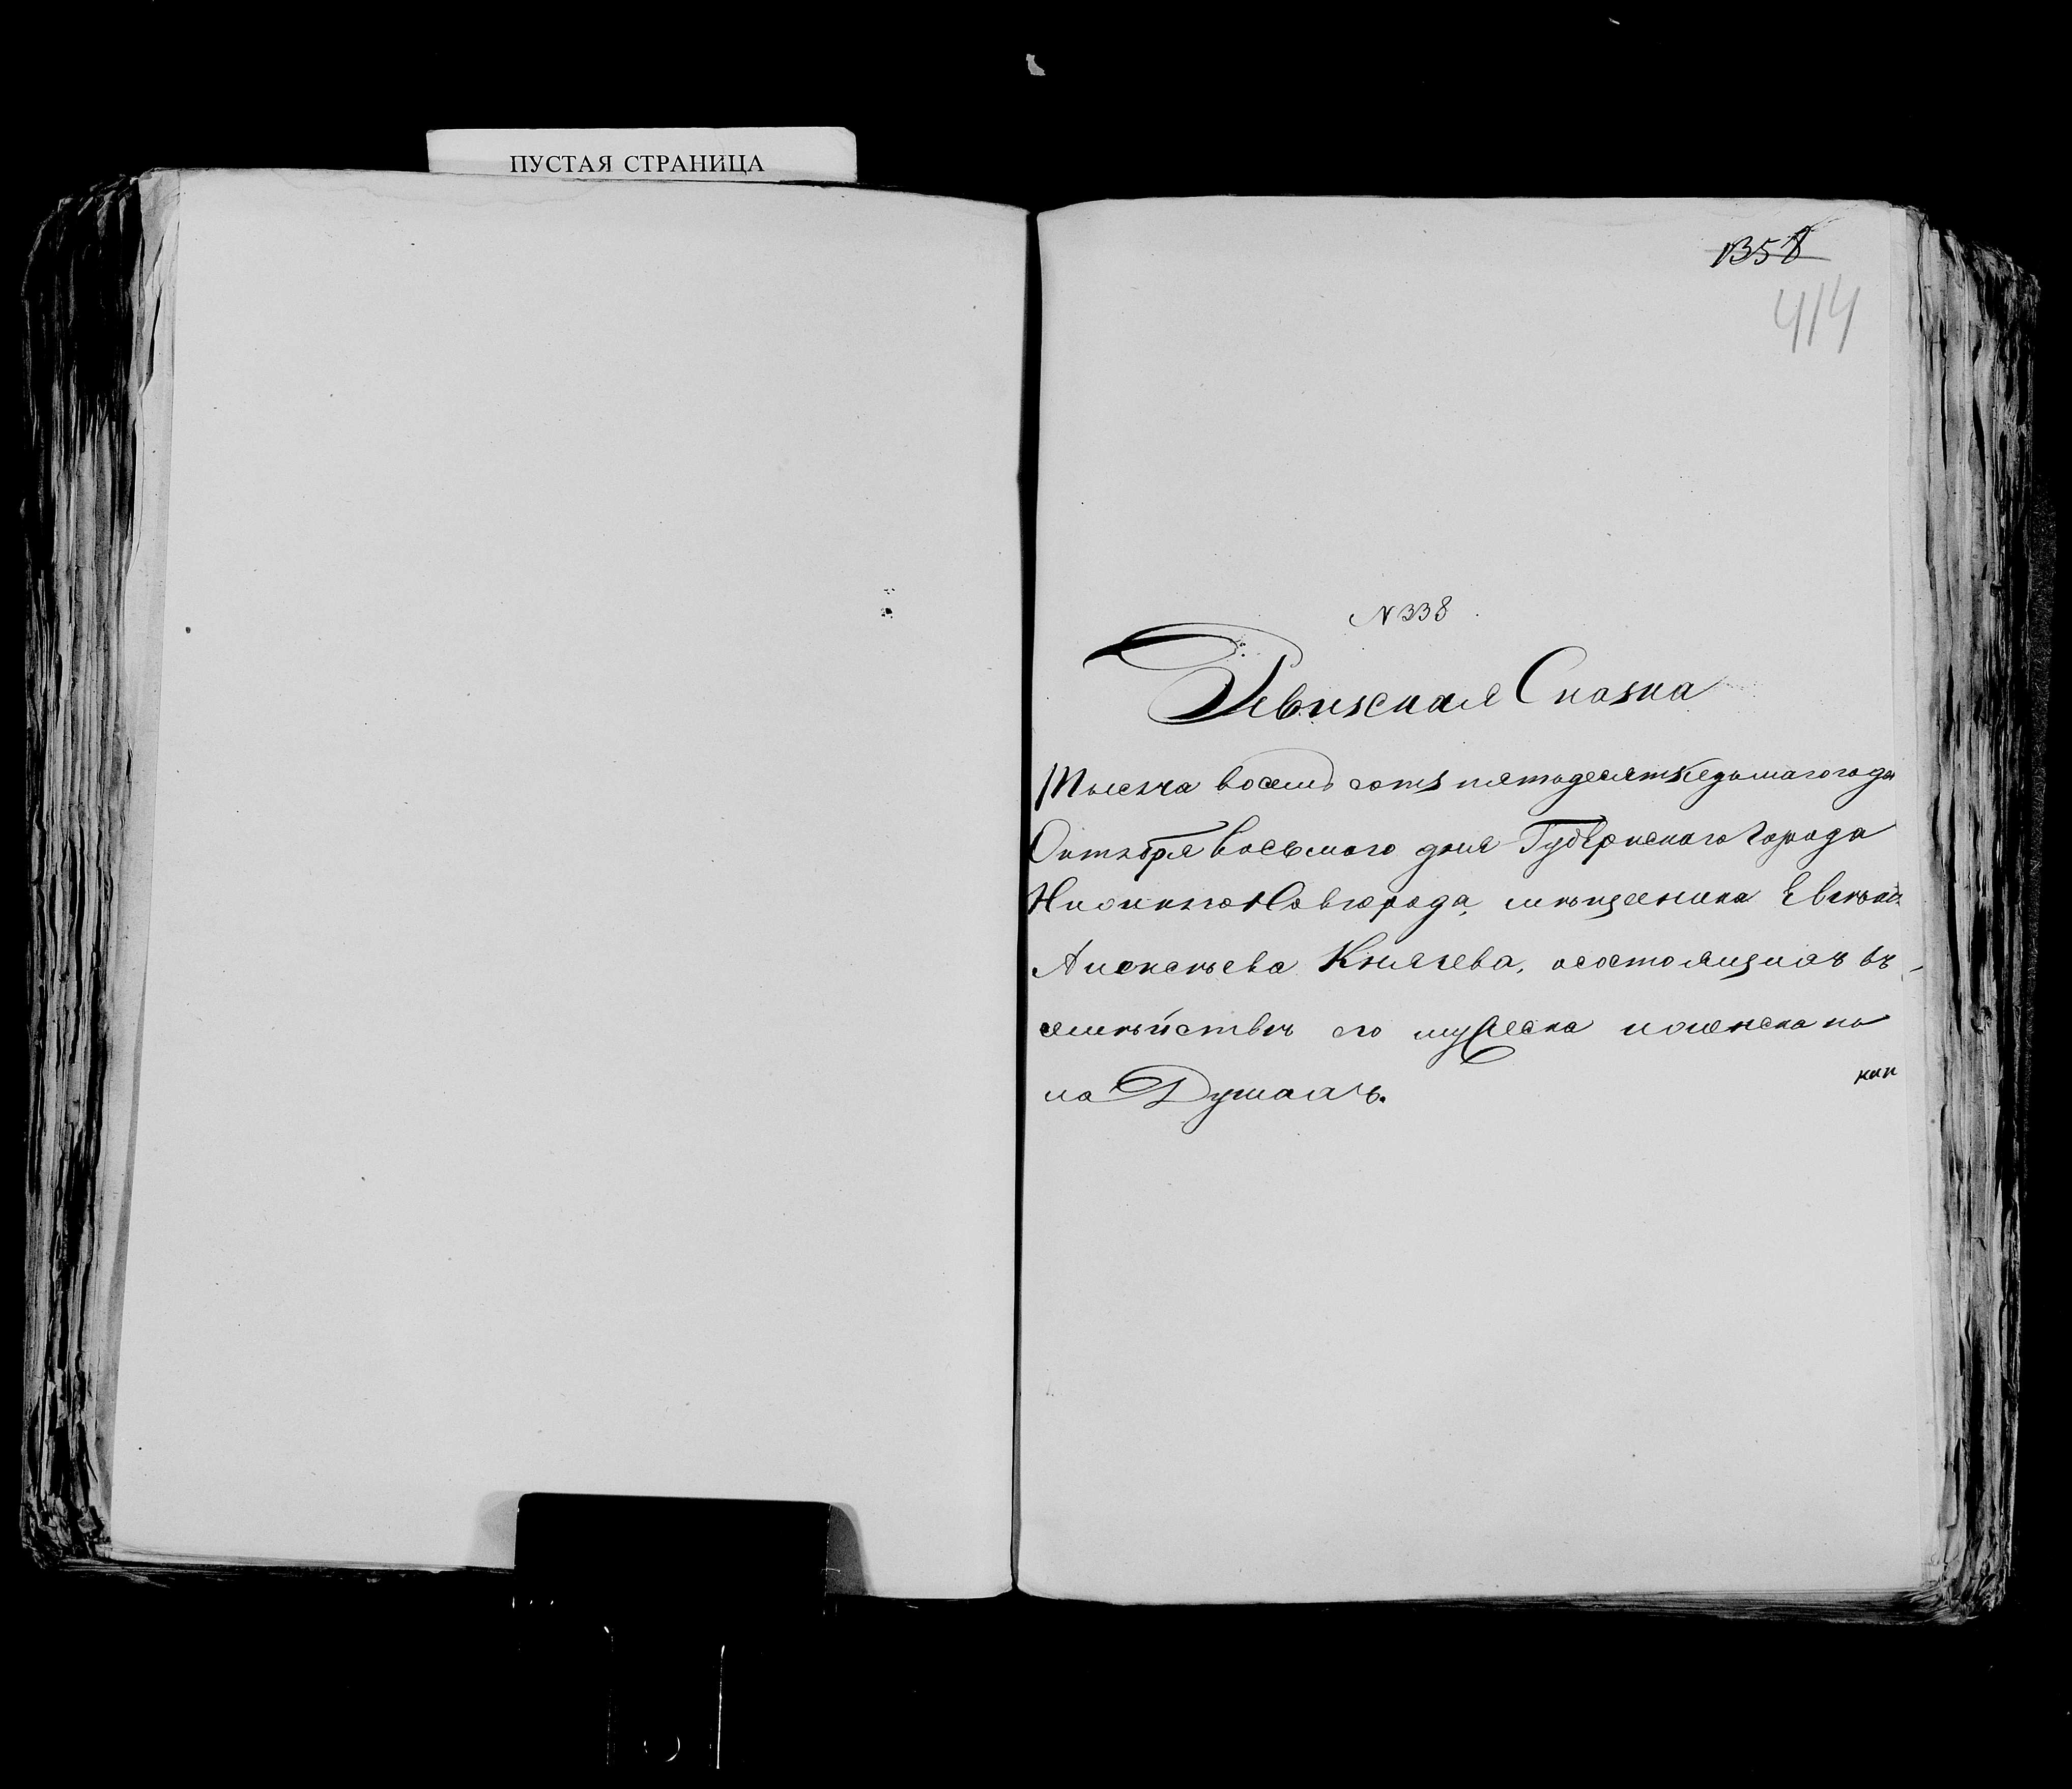 ПУСТАЯ СТРАНИЦА
1358
414
N 338
Ревизская Сказка
Тысяча восемь сотъ пятьдесятъ седьмаго года
Октября восьмого дня Губернскаго Города
Нижняго Новгорода, мѣщанина
Алексѣева Князева, о состоящихъ въ
семѣйствѣ его мужеска и женска по
ла Душахъ.